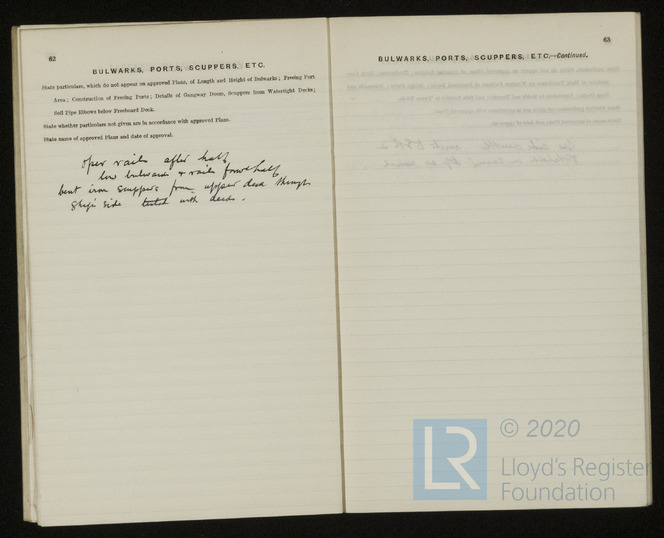 62
BULWARKS, PORTS, SCUPPERS, ETC.
State particulars, which do not appear on approved Plans, of Length and Height of Bulwarks; Freeing Port
Area; Construction of Freeing Ports; Details of Gangway Doors, Scuppers from Watertight Decks;
Soil Pipe Elbows below Freeboard Deck.
State whether particulars not given are in accordance with approved Plans.
State name of approved Plans and date of approval.
open rails after half
low bulwarks & rails forward half
bent iron scuppers from upper deck through
Ship's side with deeds.
63
BULWARKS, PORTS, SCUPPERS, ETC.—Continued.
LR
© 2020
Lloyd's Register
Foundation